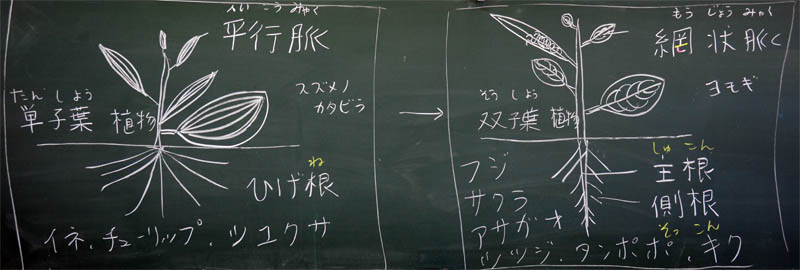 へい こう みゃく
平行脈
スズメノ
カタビラ
たん しよう
単子葉 植物
ね
ひげ根
イネ、チューリップ、ツユクサ
もう じょう みゃく
網 状 脈
ヨモギ
そう しよう
双子葉 植物
しゅ こん
主根
側根
そっ こん
フジ
サクラ
アサガオ
ツツジ、タンポポ、キク